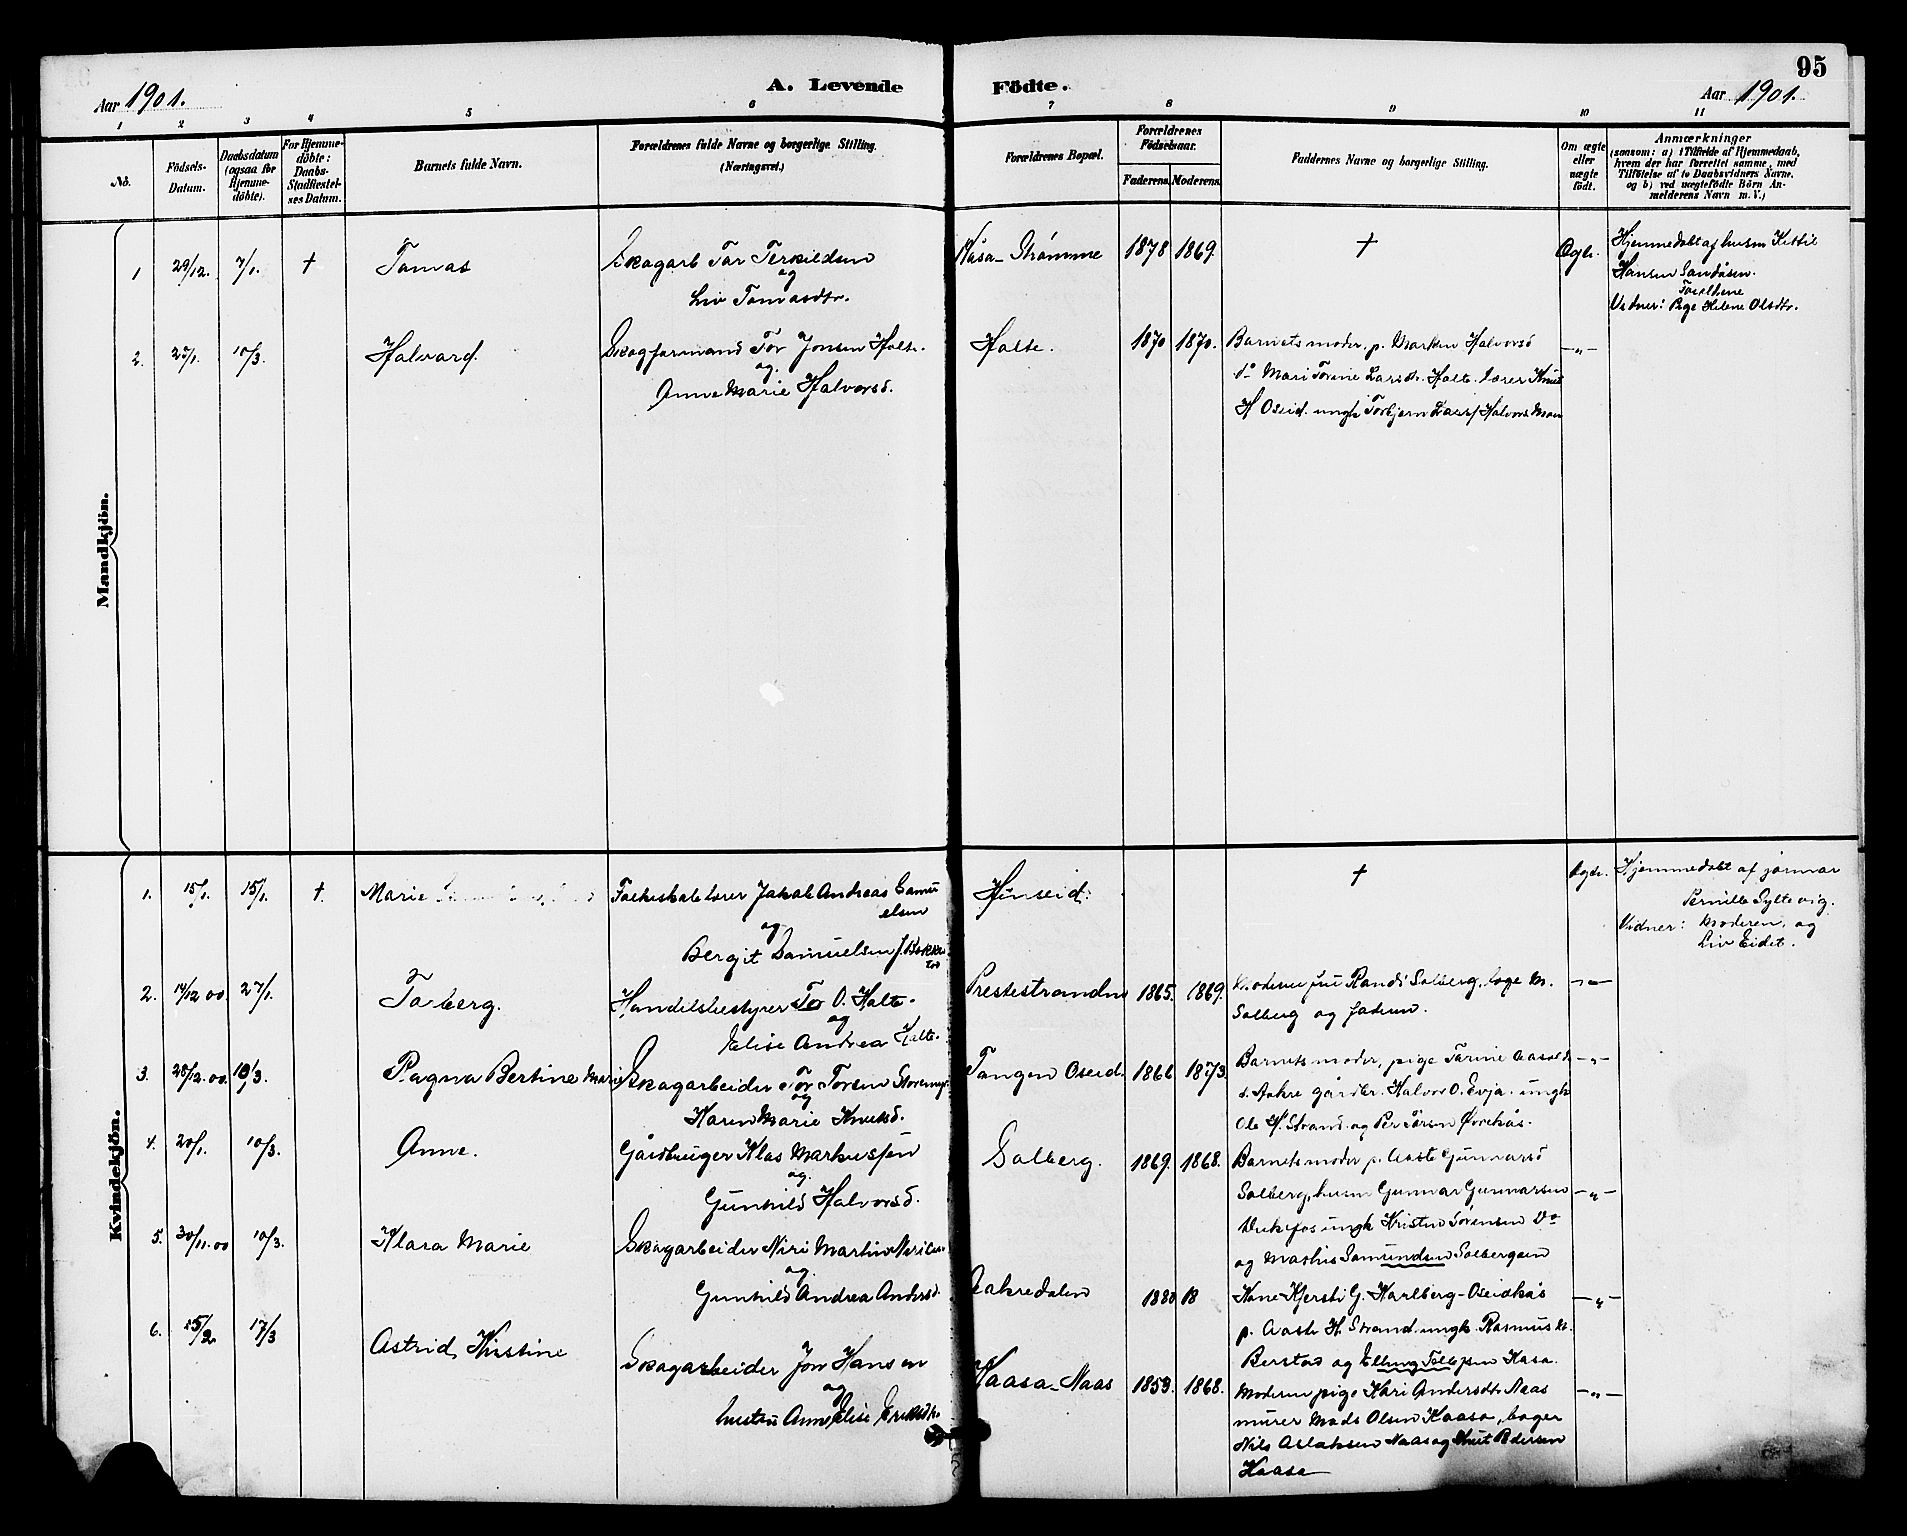 95
Aar 1901.
A. Levende Födte.
Aar 1901.
1 2 3 4 5 6 7 8 9 10 11
No.
Födsels-
Datum.
Daabsdatum
(ogsaa for
Hjemme-
döbte).
For Hjemme-
döbte:
Daabs-
Stadfæstel-
ses Datum.
Barnets fulde Navn.
Forældrenes fulde Navne og borgerlige Stilling.
(Næringsvei.)
Forældrenes Bopæl.
Forældrenes
Födselsaar.
Faderens. Moderens.
Faddernes Navne og borgerlige Stilling.
Om ægte
eller
uægte
födt.
Anmærkninger
(saasom: a) i Tilfælde af Hjemmedaab,
hvem der har forrettet samme, med
Tilföielse af to Daabsvidners Navne,
og b) ved uægtefödte Börn An-
melderens Navn m. V.)
Mandkjön.
1 29/12. 7/1. † Tomas
Skogarb Tor Terkildsen
og
Liv Tomasdtr.
Kåsa-Strømme 1878 1869. †
Hjemmedøbt af husm Kittil
Hansen Sandåsen.
Forældrene
Vidner: Pige Helene Olsdtr.
2. 27/1. 10/3. Halvard.
Skogformand Tor Jonsen Holte.
og
Anne Marie Halvorsd.
Holte. 1870 1870.
Barnets moder, p. Marken Halvorsd
do Mari Torine Larsdr. Holte. lærer Knut
H Oseid. ungk Torbjørn Lars Halvors Moen
-„-
Kvindekjön.
1. 15/1. 15/1. †. Marie
Folkeskolelærer Jakob Andreas Samu
elsen
og
Bergit Samuelsen f.
Hinseid. †
Hjemmedøbt af jormor
Pernille Syltevig.
Vidner: Moderen, og
Liv Eidet.
2. 14/12 00. 27/1. Torberg.
Handelsbestyrer Tor O. Holte.
og
Elise Andrea Holte.
Prestestranden 1865. 1869.
Moderen, fru Randi Solberg, M.
Solberg og faderen.
-„-
3. 28/12.00. 10/3. Ragna Bertine Marie
Skogarbeider Tor Torsen
og
Karen Marie Knutsd.
Tangen Oseid. 1866 1873.
Barnets moder, pige Torine Aasold
s. Aakre gårdbr. Halvor O. Evja. ungk
Ole H. Strand. og Per Tørsen Øvrekås.
-„-
4. 20/1. 10/3. Anne.
Gårdbruger Klas Markussen
og
Gunhild Halvorsd.
Solberg. 1869. 1868.
Barnets moder p. Aaste Gunnarsd
Solberg, husm Gunnar Gunnarsen
ungk Kristen Sørensen Do
og Mathis Samundsen Solbergsen
-„-
5. 30/11.00 10/3. Klara Marie
Skogarbeider Niri Martin
og
Gunhild Andrea Andersd.
Aakredalen 1880 18
Kone Kjersti G. Karlberg-Oseidkås
p. Aaste H. Strand. ungk. Rasmus
Berstad og Elling Tellefsen Kasa.
-„-
6. 15/2 17/3 Astrid Kirstine
Skogarbeider Jon Hansen
og
hustru Anne Elise Eriksdtr.
Kaasa-Naas 1853. 1868.
Moderen, pige Kari Andersdtr. Naas
murer Mads Olsen Kaasa, bager
Nils Aslaksen Naas og Knut Pedersen
Kaasa
-„-